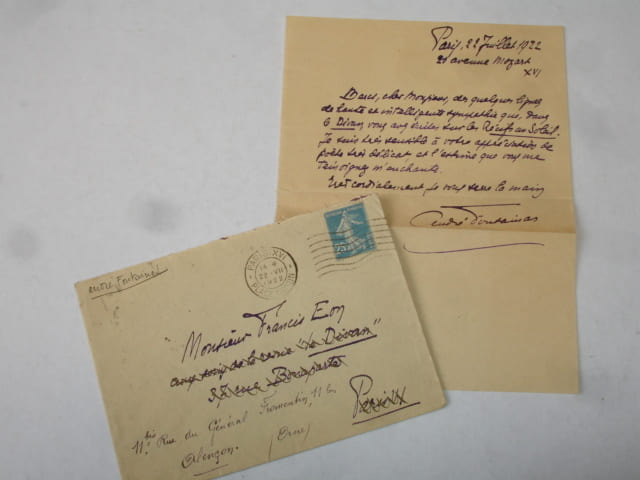 Paris, 22 Juillet 1922
21 avenue Mozart
XVI
Merci, cher Monsieur, des quelques lignes
de haute et intelligente sympathie que, dans
le Divan vous avez écrites sur les Récifs au Soleil.
Je suis très sensible à votre appréciation de
poète très délicat et l'estime que vous me
témoignez m'enchante.
Très cordialement je vous serre la main
André Fontainas
andré Fontainas
PARIS XVI
22 VII
Monsieur Francis Eon
aux soins de la revue "Le Divan"
37 rue Bonaparte
Paris
11bis Rue du Général Fromentin, 11 bis
Alençon. (Orne)